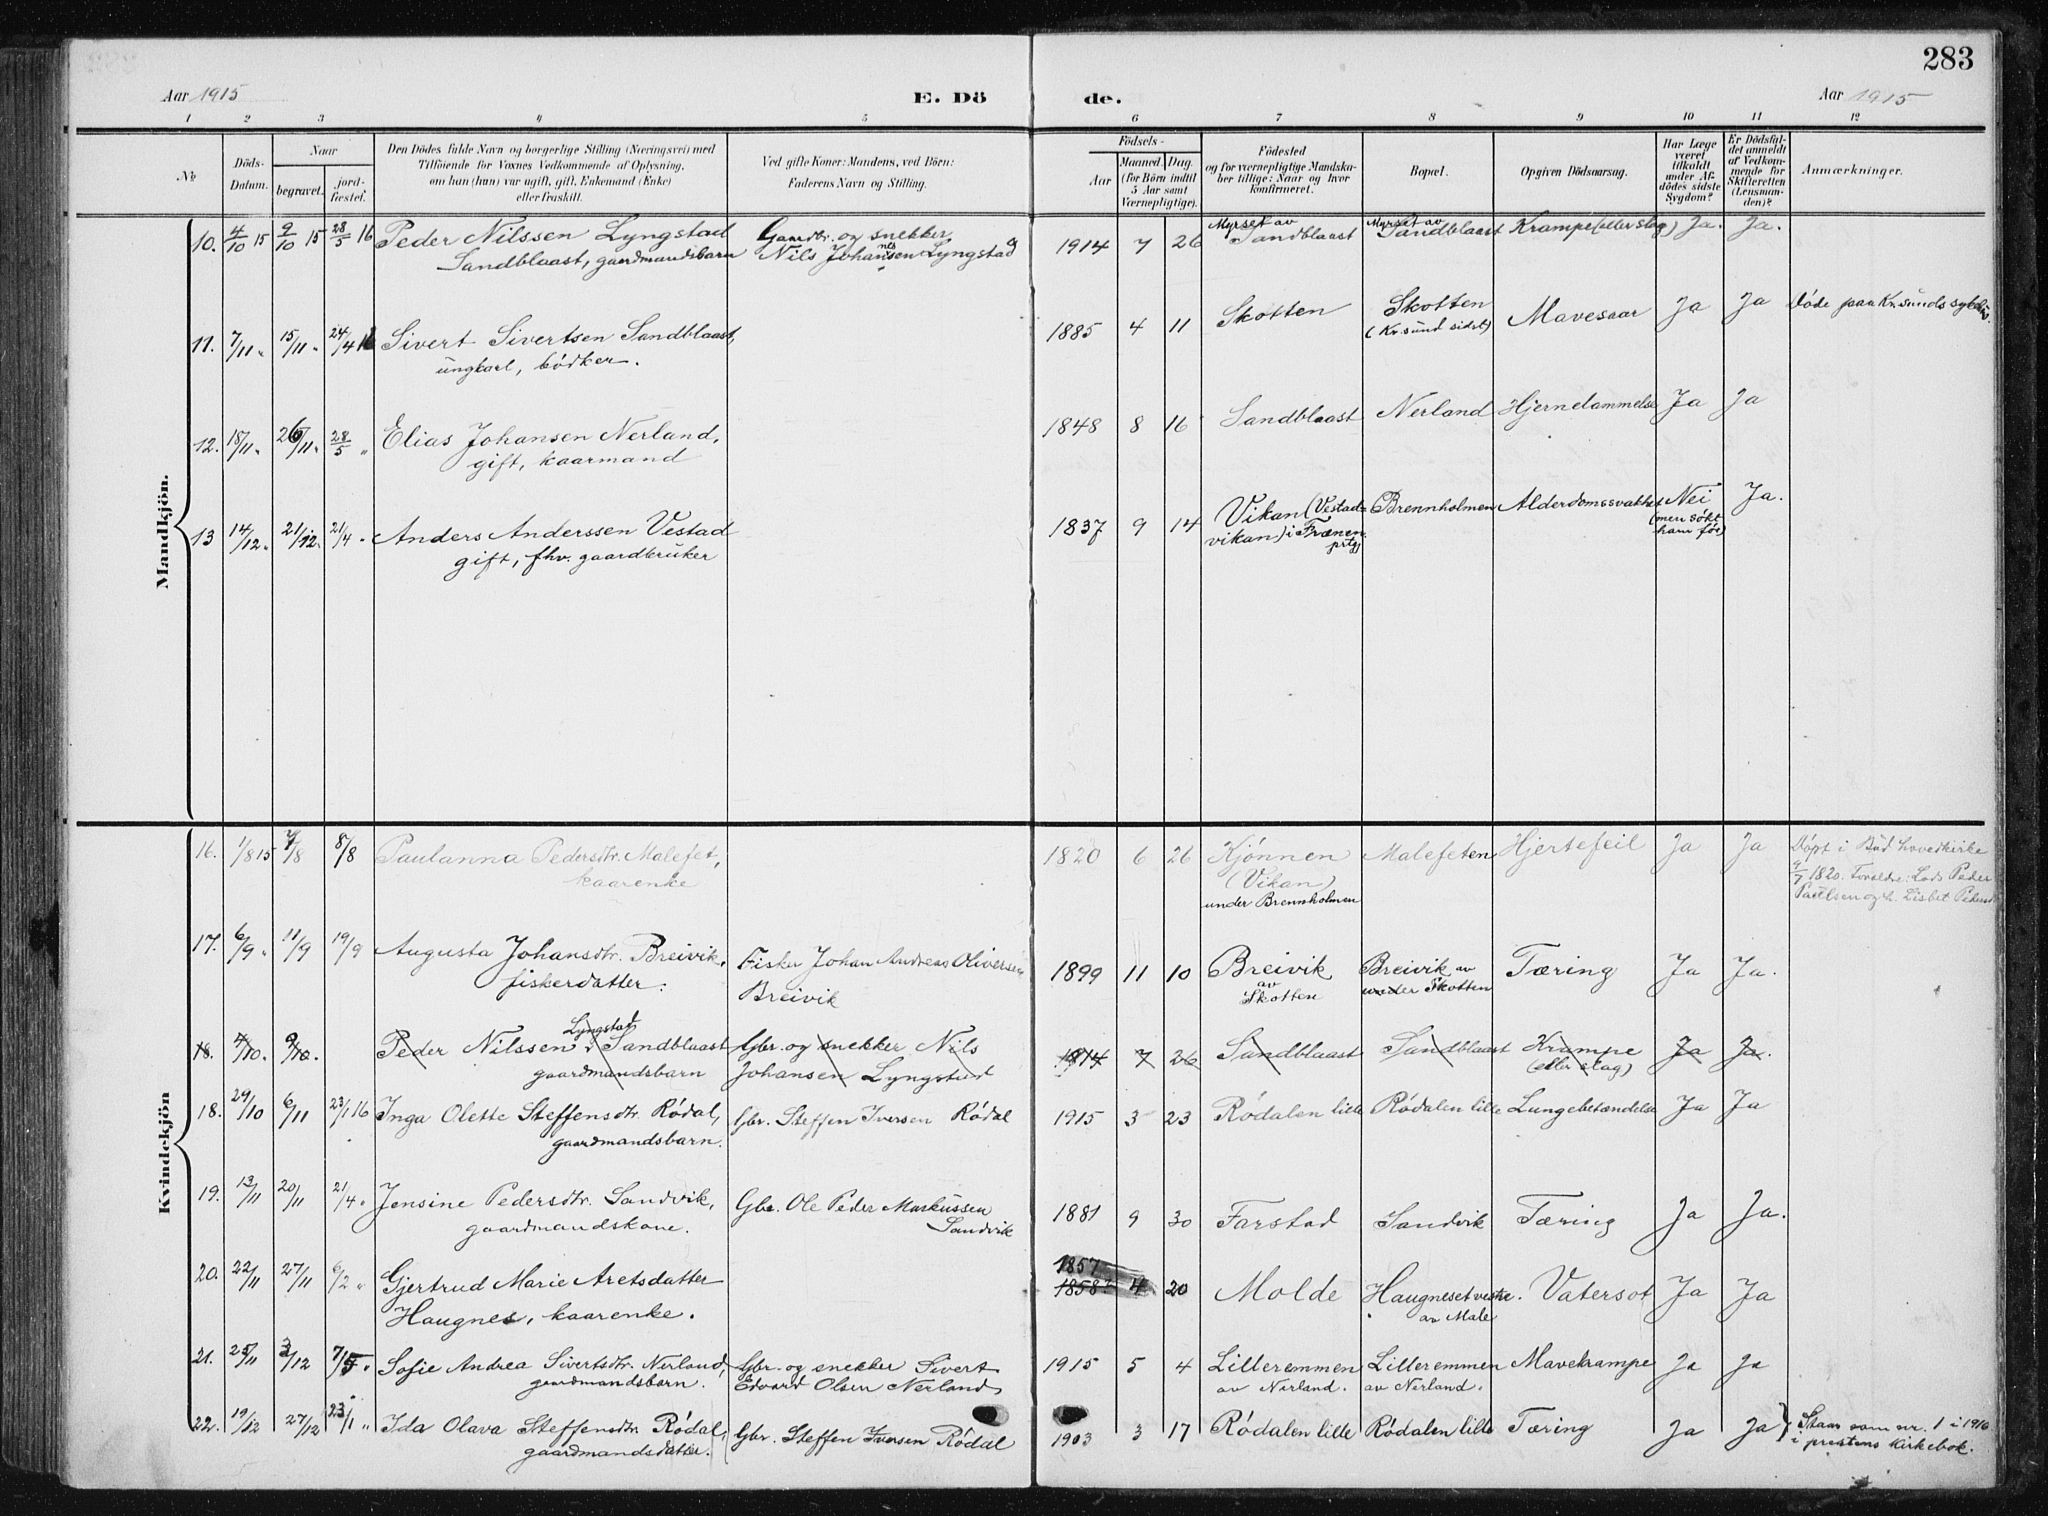 283
Aar 1915
E. Döde.
Aar 1915
1 2 3 4 5 6 7 8 9 10 11 12
No
Döds-Datum.
Naar
begravet.
jord-fæstet.
Den Dödes fulde Navn og borgerlige Stilling (Næringsvei) med
Tilföiende for Voxnes Vedkommende af Oplysning,
om han (hun) var ugift, gift, Enkemand (Enke)
eller fraskilt.
Ved gifte Koner: Mandens, ved Börn:
Faderens Navn og Stilling.
Födsels-
Aar
Maaned Dag.
(for Börn indtil
5 Aar samt
Værnepligtige).
Födested
og for værnepligtige Mandska-
ber tillige: Naar og hvor
konfirmeret.
Bopæl.
Opgiven Dödsaarsag.
Har Læge
været
tilkaldt
under Af-
dödes sidste
Sygdom?
Er Dödsfal-
det anmeldt
af Vedkom-
mende for
Skifteretten
(Lensman-
den)?
Anmærkninger.
Mandkjön.
10. 4/10 15 9/10 15 28/5 16 Peder Nilssen Lyngstad Gaardbr. og snekker 1914 7 26 Myrset av Sandblaast Myrset av Sandblaast Krampe (eller slag) Ja. Ja.
Sandblaast, gaardmandsbarn Nils Johannessen Lyngstad
11. 7/11 " 15/11 " 24/4 16 Sivert Sivertsen Sandblaast, 1885 4 11 Skotten Skotten (Kr.sund sidst) Mavesaar Ja Ja Döde paa Kr.sunds
ungkarl, bödker.
12. 18/11 " 26/11 " 28/5 " Elias Johansen Nerland, 1848 8 16 Sandblaast Nerland Hjernelammelse Ja Ja
gift, kaarmand
13 14/12 " 21/12 " 21/4 " Anders Anderssen Vestad 1837 9 14 Vikan (Vestad-vikan) i Frænen prtg Brennholmen Alderdomssvakhet Nei (men sökt ham för) Ja.
gift, fhv. gaardbruker
Kvindekjön
16. 1/8 15 7/8 8/8 Paulanna Pedersdtr. Malefet, 1820 6 26 Kjönnen (Vikan) under Brennholmen Malefeten Hjertefeil Ja Ja Döpt i Bud hovedkirke
kaarenke 9/7 1820. Foreldre: Lods Peder
Paulsen og h. Lisbet Pedersd
17. 6/9 " 11/9 19/9 Augusta Johansdtr. Breivik, Fisker Johan Andreas Oliversen 1899 11 10 Breivik av Skotten Breivik av under Skotten Tæring Ja Ja.
fiskerdatter. Breivik
18. 4/10. 9/10. Peder Nilssen Lyngstad Sandblaast Gbr. og snekker Nils 1914 7 26 Sandblaast Sandblaast Krampe (eller slag) Ja Ja.
gaardmandsbarn Johansen Lyngstad
18. 29/10 6/11 23/1 16 Inga Olette Steffensdtr. Rödal, Gbr. Steffen Iversen Rödal 1915 3 23 Rödalen lille Rödalen lille Lungebetændelse Ja Ja
gaardmandsbarn.
19. 13/11 20/11 21/4 " Jensine Pedersdtr. Sandvik, Gbr. Ole Peder Markussen 1881 9 30 Farstad Sandvik Tæring Ja Ja.
gaardmandskone. Sandvik
20. 22/11 27/11 6/2 " Gjertrud Marie Aretsdatter 1857 1858? 4 20 Molde Haugneset vestre av Male Vatersot Ja Ja
Haugnes, kaarenke.
21. 25/11 3/12 7/5 " Sofie Andrea Sivertsdtr. Nerland, Gbr. og snekker Sivert 1915 5 4 Lilleremmen av Nerland. Lilleremmen av Nerland. Mavekrampe Ja Ja
gaardmandsbarn. Edvard Olsen Nerland
22. 19/12 27/12 23/1 " Ida Olava Steffensdtr. Rödal, Gbr. Steffen Iversen Rödal 1903 3 17 Rödalen lille Rödalen lille Tæring Ja Ja Staar som nr. 1 i 1916
gaardmandsdatter. i prestens kirkebok.